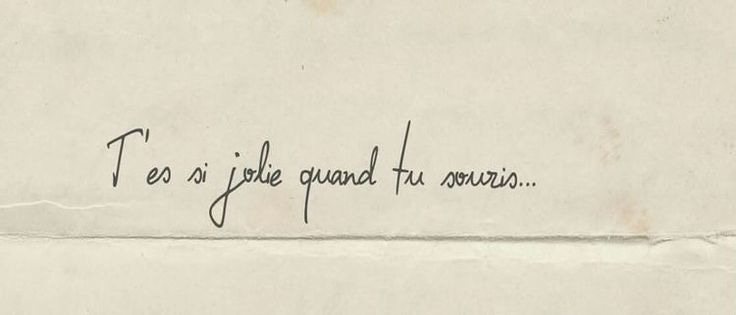 T'es si jolie quand tu souris...